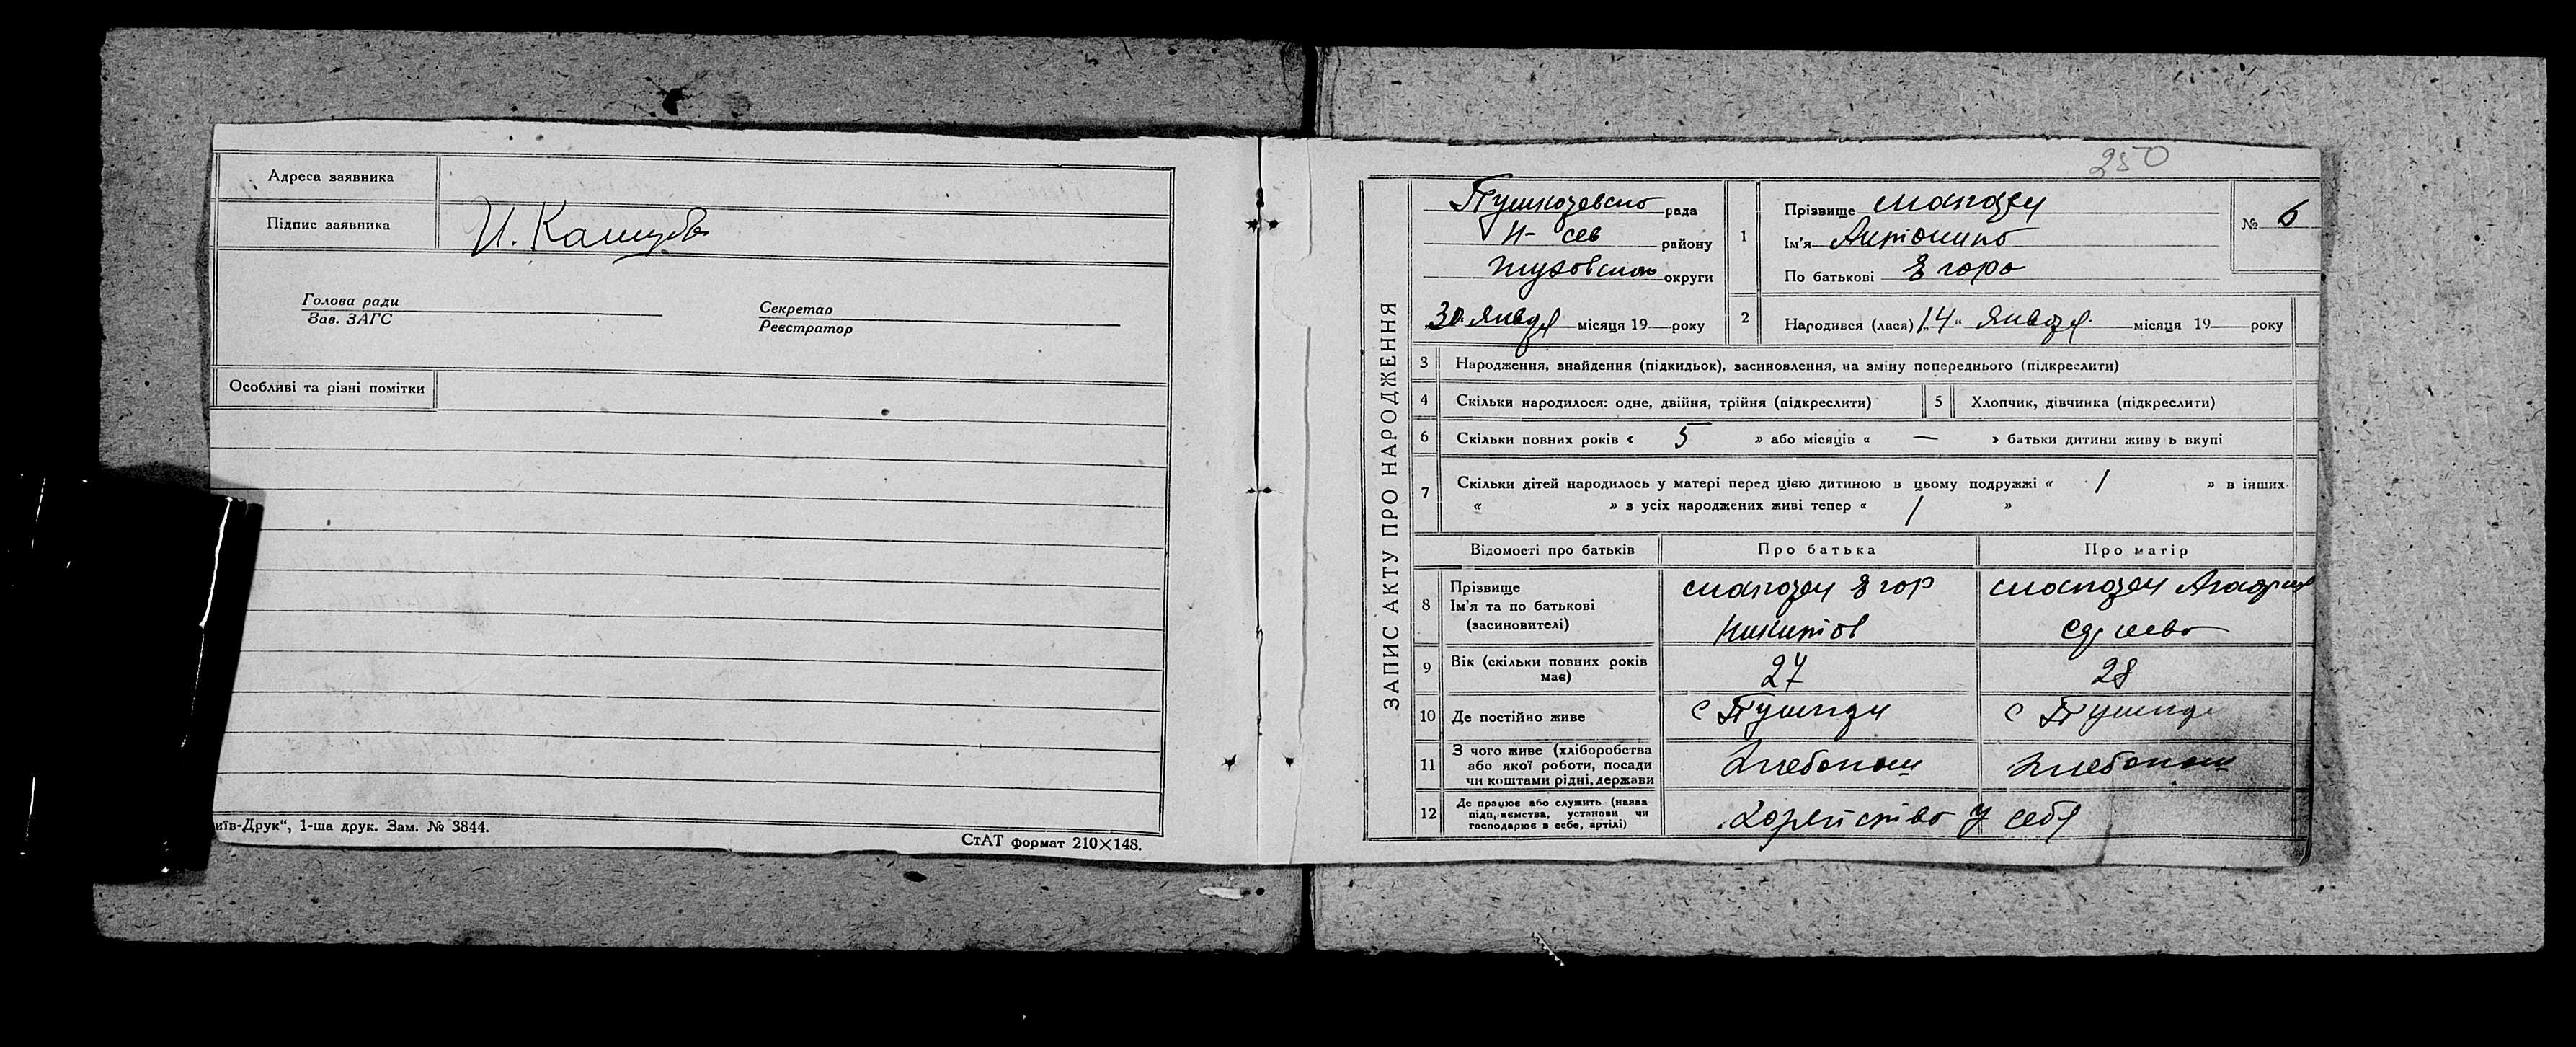 Адреса заявника
Підпис заявника И. Кашуба
Голова ради
Зав. ЗАГС
Секретар
Реєстратор
Особливі та різні помітки
иїв-Друк“, 1-ша друк. Зам. № 3844.
СтАТ формат 210×148.
250
ЗАПИС АКТУ ПРО НАРОДЖЕННЯ
рада
Н-сев району
округи
30 Января місяця 19 року
1
Прізвище
Ім'я Антонина
По батькові Егоро
№ 6
2 Народився (лася) „14“ Января місяця 19 року
3 Народження, знайдення (підкидьок), засиновлення, на зміну попереднього (підкреслити)
4 Скільки народилося: одне, двійня, трійня (підкреслити)
5 Хлопчик, дівчинка (підкреслити)
6 Скільки повних років « 5 » або місяців « — » батьки дитини живу ь вкупі
7 Скільки дітей народилось у матері перед цією дитиною в цьому подружжі « 1 » в інших
« » з усіх народжених живі тепер « 1 »
Відомості про батьків Про батька Про матір
8 Прізвище
Ім'я та по батькові
(засиновителі)
Егор
Никитов
9 Вік (скільки повних років
має)
27
28
10 Де постійно живе
с
с
11 З чого живе (хліборобства
або якої роботи, посади
чи коштами рідні, держави
Хлебопаш
Хлебопаш
12 Де працює або служить (назва
підприємства, установи чи
господарює в себе, артілі)
у себя